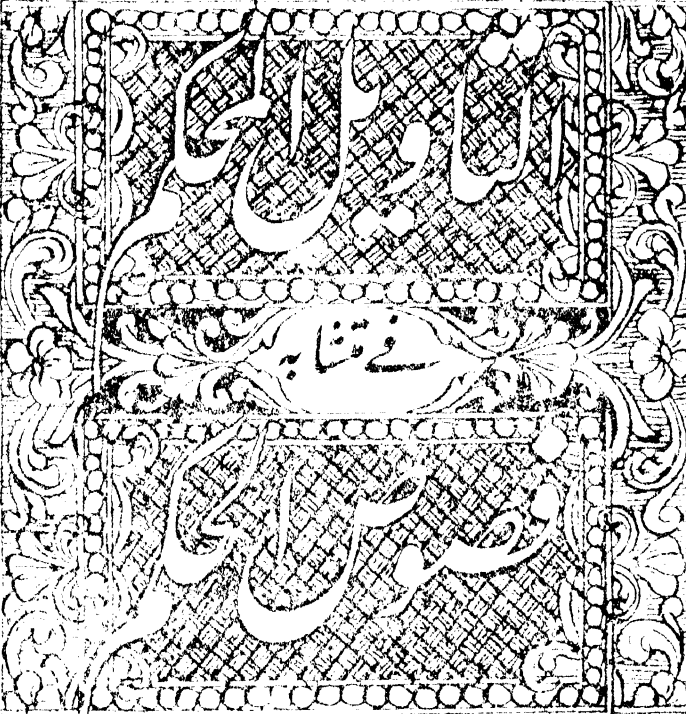 التاویل المحکم
فے متشابہ
فصوص الحکم